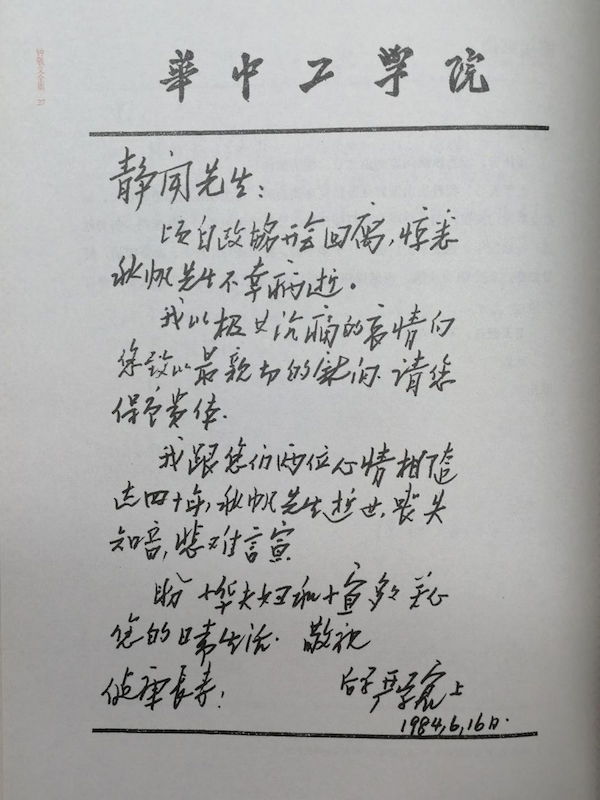 華中工學院
静闻先生：
顷自政协开会回离,惊悉
秋帆先生不幸病逝。
我以极其沉痛的哀情向
您致以最亲切的慰问.请您
保重贵体.
我跟您们两位心情相随
达四十年,秋帆先生逝世,丧失
知音,悲难言宣
盼 华夫妇和 宣多多关心
您的日常生活. 敬祝
健康长寿！
严学宭上
1984,6,16日.
钟敬文全集 27